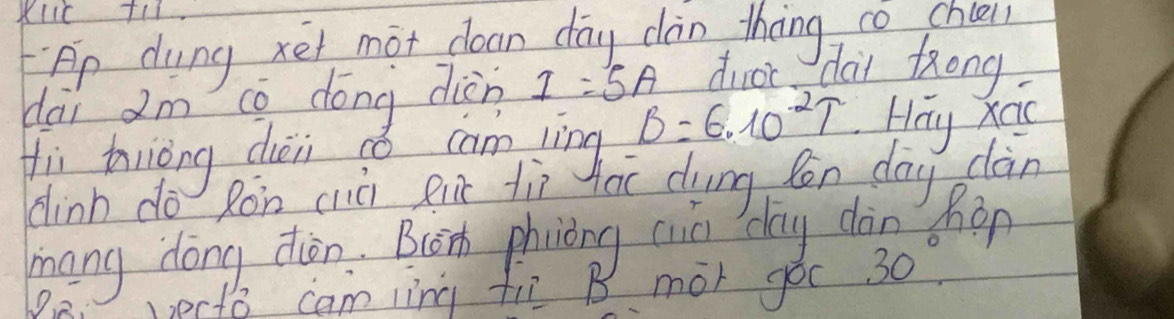 - Áp dụng xét một đoạn dây dẫn thẳng có chiều
dài 2m có dòng điện I = 5A được đặt trong
từ trường điều có cảm ứng B = 6.10⁻²T. Hãy xác
định độ lớn của lực từ tác dụng lên dây dẫn
mang dòng điện. Biết phương của dây dẫn hợp
với vectơ cảm ứng từ B một góc 30°.